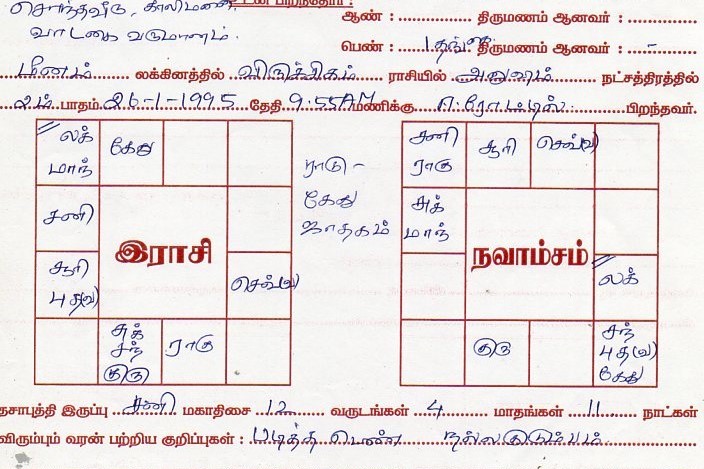 சொந்தவீடு, காலிமனை உடன் பிறந்தோர் :
வாடகை வருமானம்.
ஆண் : ............... திருமணம் ஆனவர் : ...............
பெண் : 1 தங்கை திருமணம் ஆனவர் : -
மீனம் லக்கினத்தில் விருச்சிகம் ராசியில் அனுஷம் நட்சத்திரத்தில்
2ம் பாதம் 26-1-1995 தேதி 9:55AM மணிக்கு பிறந்தவர்.
லக் மாந் கேது
சனி
சூரி புத(வ) இராசி செவ்(வ)
சுக் சந் குரு ராகு
ராகு -
கேது
ஜாதகம்
சனி ராகு சூரி செவ்(வ)
சுக் மாந்
நவாம்சம் லக்
குரு சந் புத(வ) கேது
தசாபுத்தி இருப்பு சனி மகாதிசை 12 வருடங்கள் 4 மாதங்கள் 11 நாட்கள்
விரும்பும் வரன் பற்றிய குறிப்புகள் : படித்த பெண் நல்லகுடும்பம்